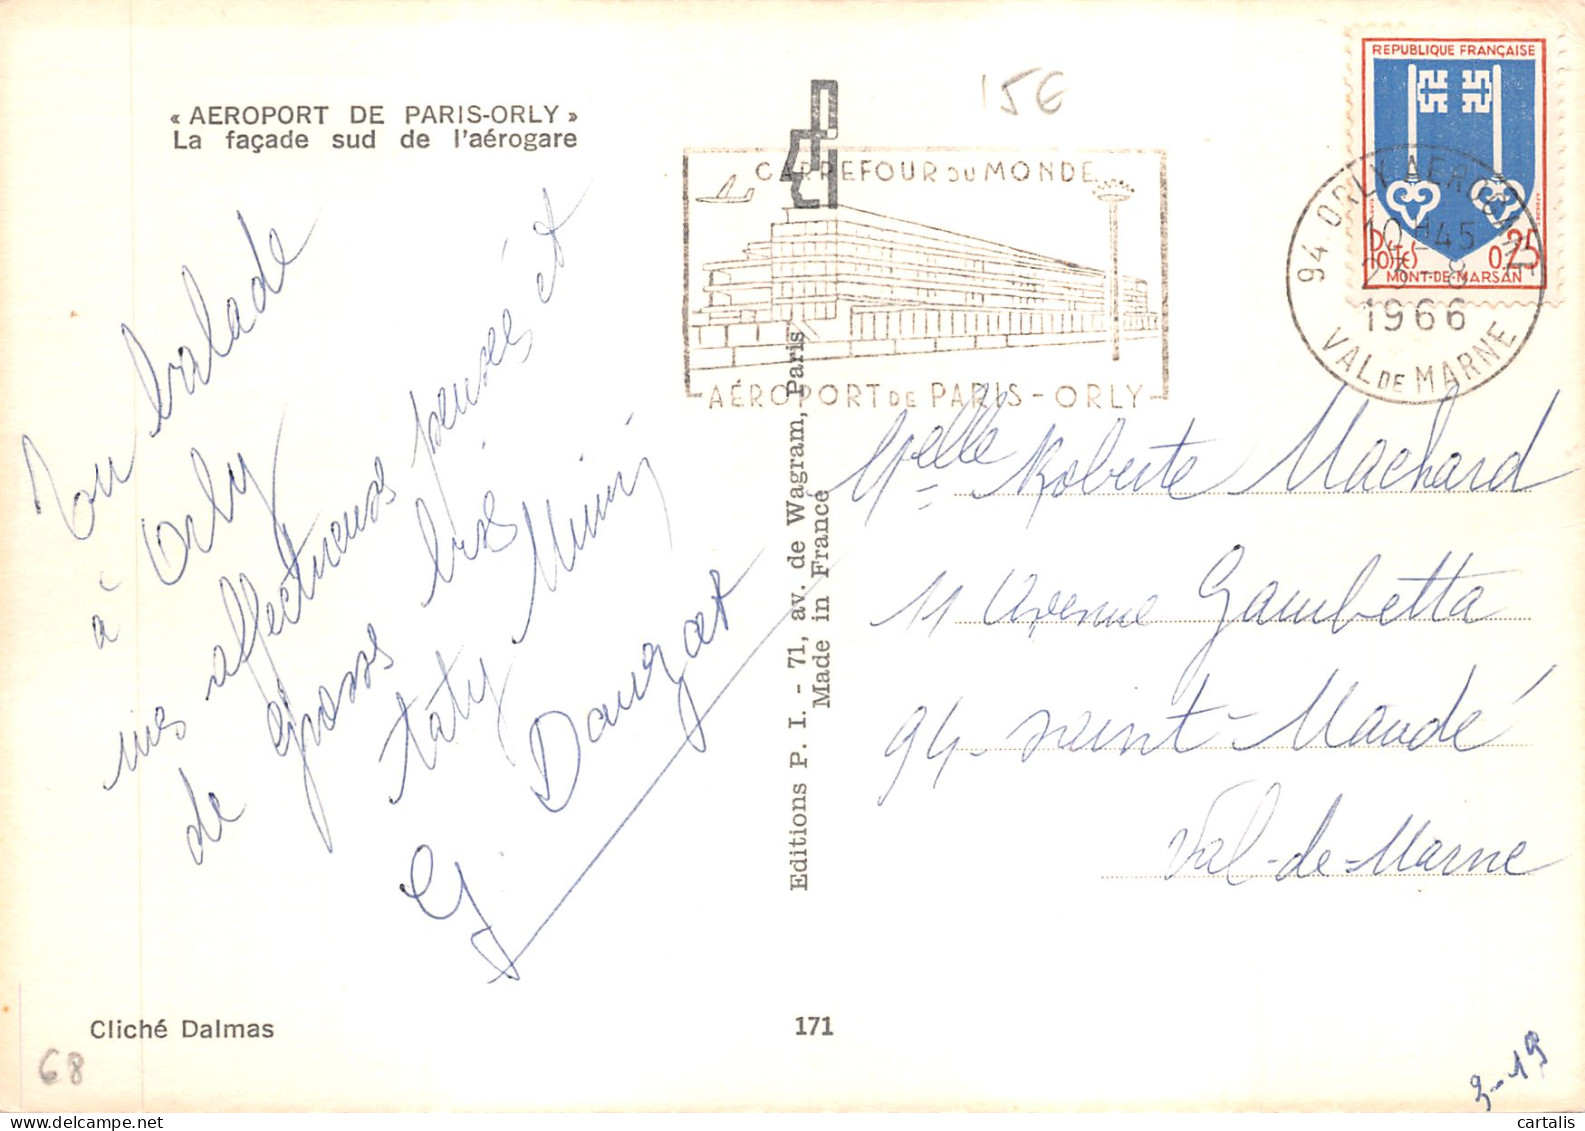 « AEROPORT DE PARIS-ORLY »
La façade sud de l'aérogare
15€
CARREFOUR DU MONDE
AÉROPORT DE PARIS - ORLY
REPUBLIQUE FRANÇAISE
POSTES
0,25
MONT-DE-MARSAN
94 ORLY AEROGARE
10 H 45
8
1966
VAL DE MARNE
balade
à Orly
mes affectueuses pensées et
de grosses bises
Taty Mimi
G. Dauzat
Editions P. I. - 71, av. de Wagram, Paris
Made in France
Melle Roberte Machard
11 Avenue Gambetta
94 - Saint-Mandé
Val-de-Marne
Cliché Dalmas
171
68
3-19
cartalis